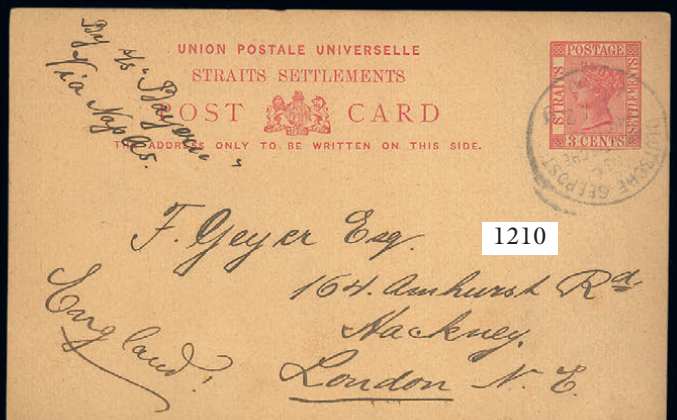 By s/s "Bayern"
Via Naples.
UNION POSTALE UNIVERSELLE
STRAITS SETTLEMENTS
POST CARD
THE ADDRESS ONLY TO BE WRITTEN ON THIS SIDE.
POSTAGE
STRAITS
SETTLEMENTS
3 CENTS
DEUTSCHE SEEPOST
1210
F. Geyer Esq.
164. Amhurst Rd.
Hackney.
London N. E.
England.